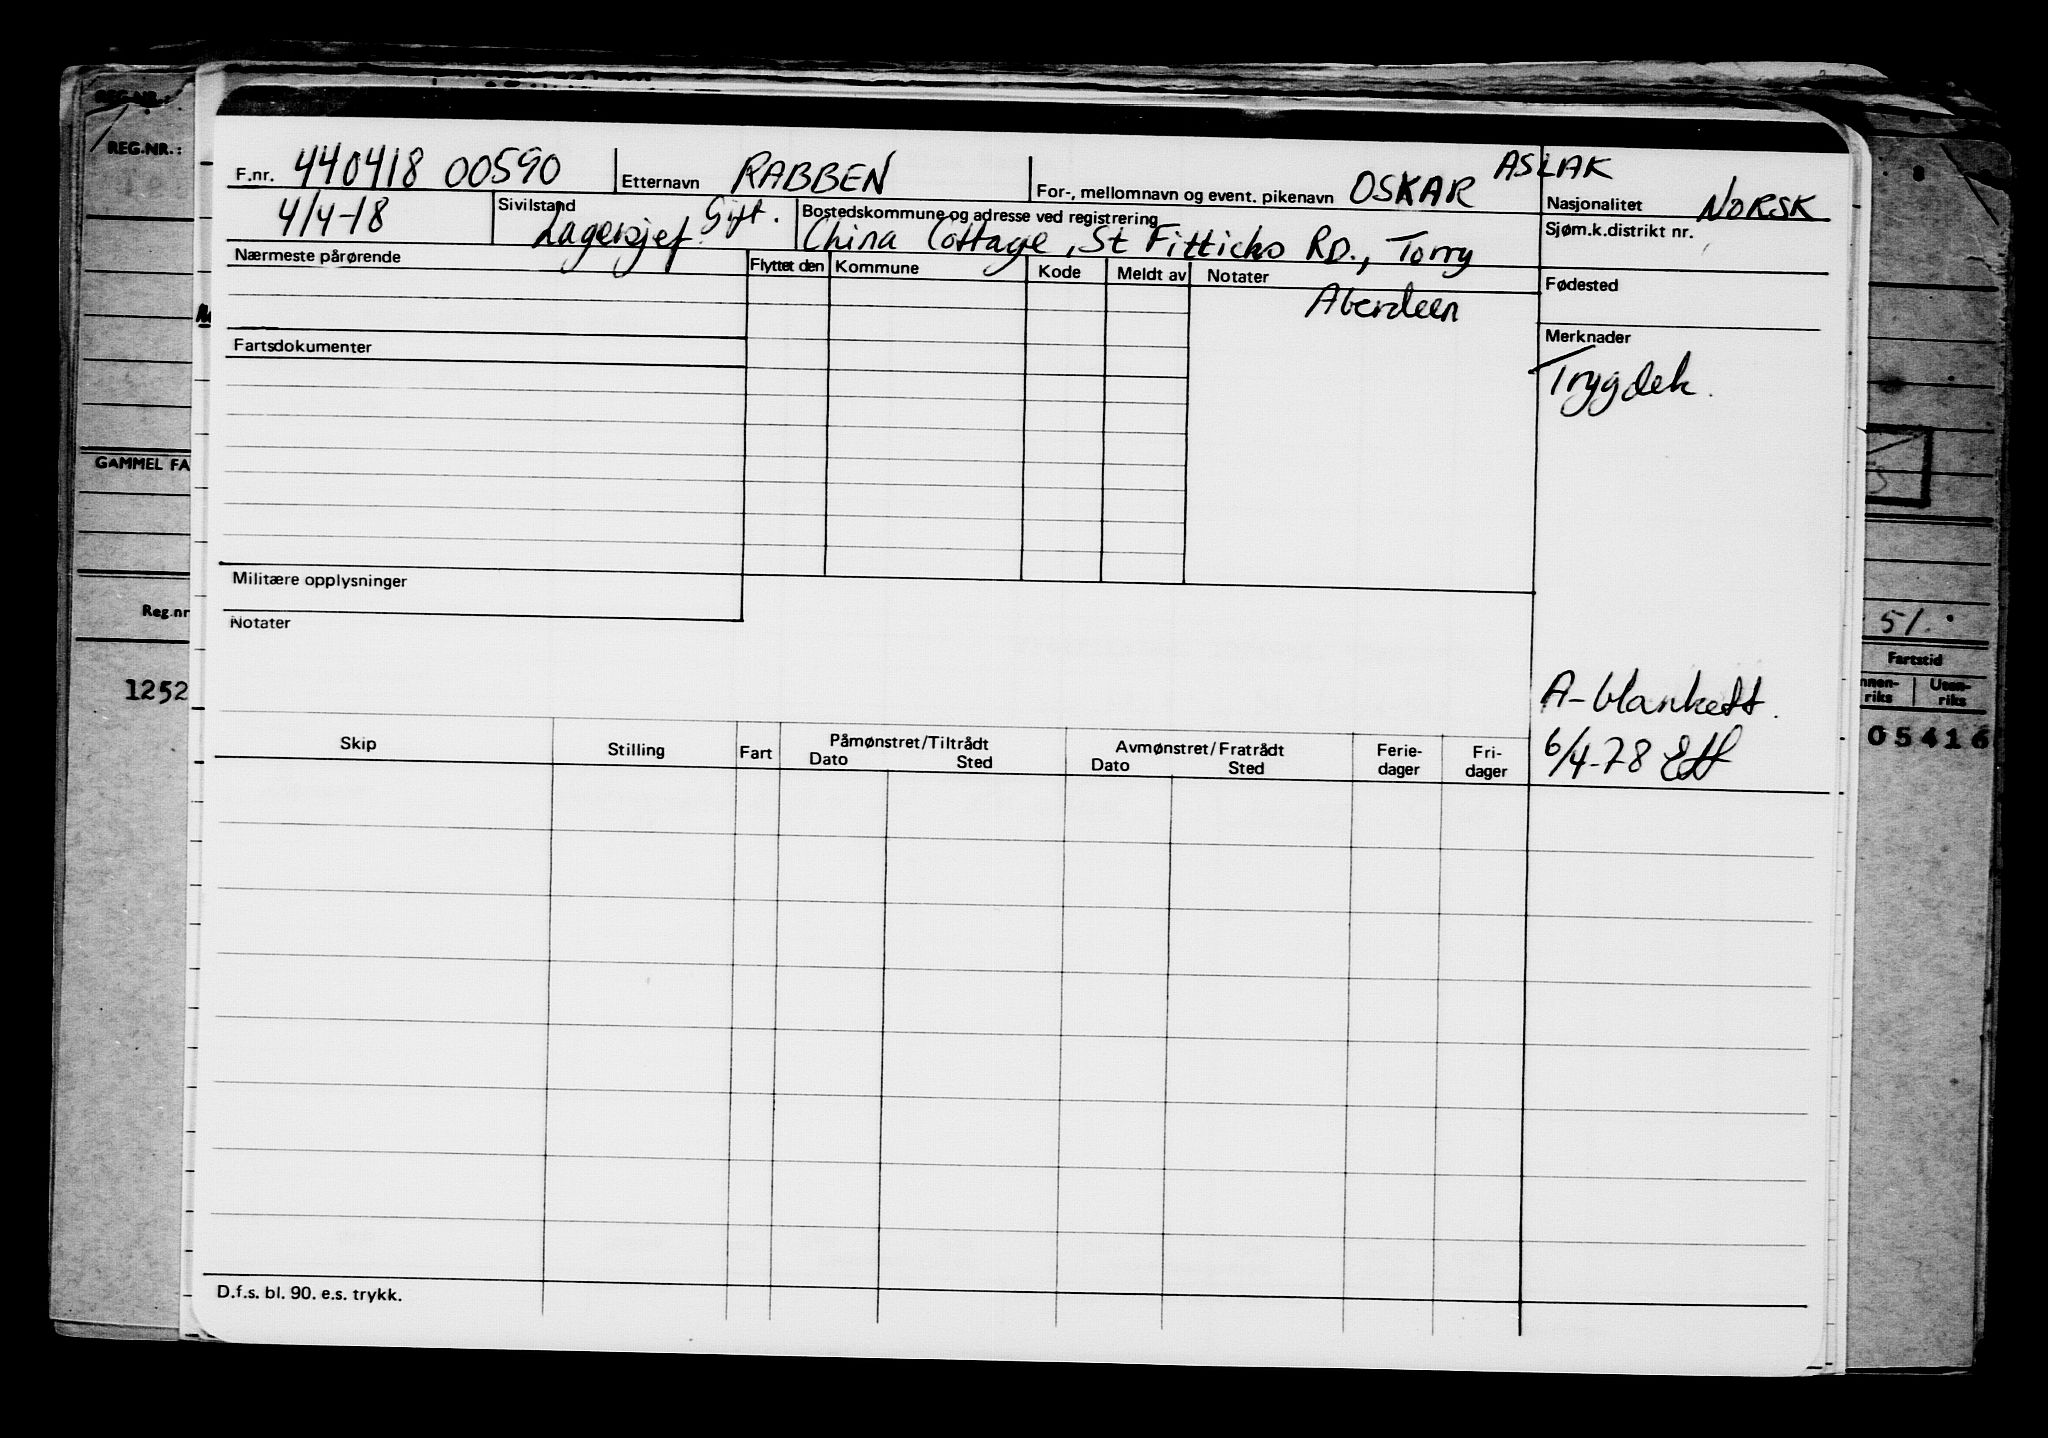 REG.NR.:
GAMMEL FA
Reg.nr
1252
F.nr. 440418 00590 Etternavn RABBEN For-, mellomnavn og event. pikenavn OSKAR ASLAK Nasjonalitet NORSK
4/4-18 Sivilstand Gift. Lagersjef Bostedskommune og adresse ved registrering China Cottage, St Fitticks RD., Torry Sjøm.k.distrikt nr.
Nærmeste pårørende Flyttet den Kommune Kode Meldt av Notater Aberdeen Fødested
Fartsdokumenter Merknader
Trygdek.
Militære opplysninger
Notater
A-blankett.
6/4-78
Skip Stilling Fart Påmønstret/Tiltrådt Avmønstret/Fratrådt Ferie- Fri-
Dato Sted Dato Sted dager dager
D.f.s. bl. 90. e.s. trykk.
51.
Fartstid
nnen- Uten-
riks riks
05416